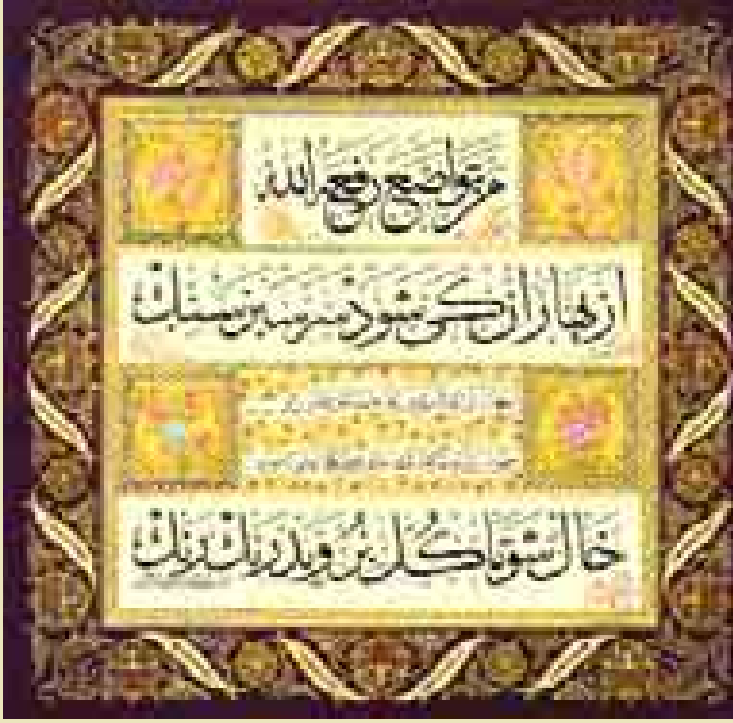 من تواضع رفعه الله
از بهاران کی شود سرسبز سنگ
خاک شو تا گل بروید رنگ رنگ